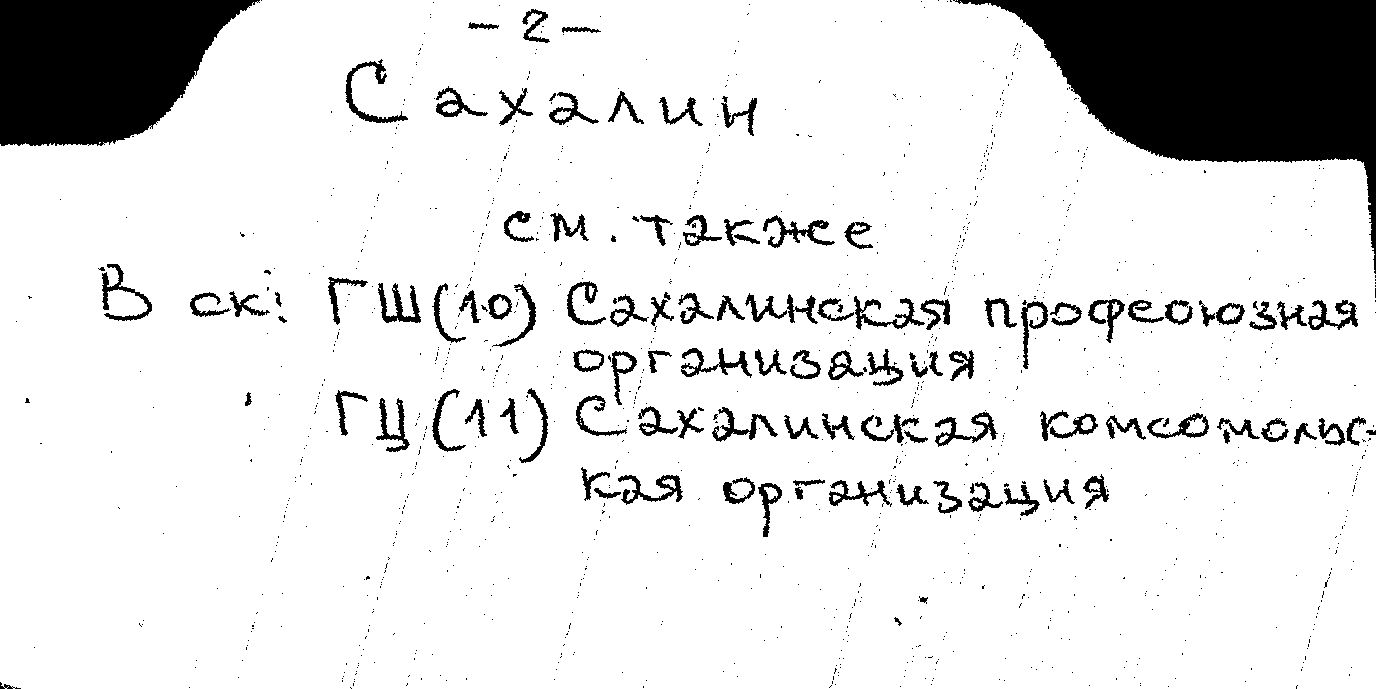 – 2 –
Сахалин
см. также
В ск: ГШ(10) Сахалинская профсоюзная
организация
ГЦ(11) Сахалинская комсомольс-
кая организация